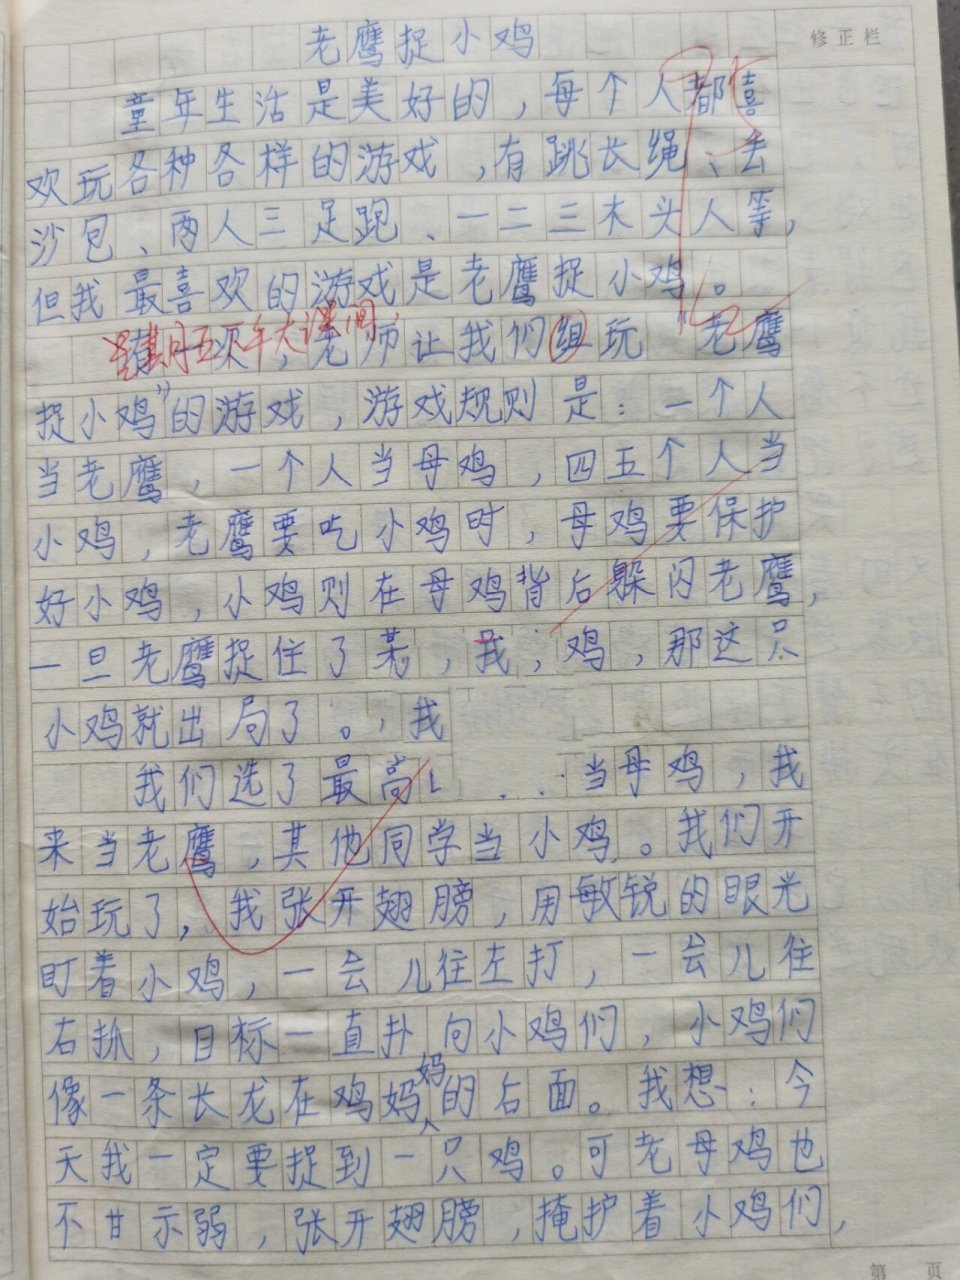 老鹰捉小鸡
修正栏
童年生活是美好的，每个人都喜
欢玩各种各样的游戏，有跳长绳、丢
沙包、两人三足跑、一二三木头人等，
但我最喜欢的游戏是老鹰捉小鸡。
星期五下午大课间，
一次，老师让我们组玩“老鹰
捉小鸡”的游戏，游戏规则是：一个人
当老鹰，一个人当母鸡，四五个人当
小鸡，老鹰要吃小鸡时，母鸡要保护
好小鸡，小鸡则在母鸡背后躲闪老鹰，
一旦老鹰捉住了某，我，鸡，那这只
小鸡就出局了。，我
我们选了最高 当母鸡，我
来当老鹰，其他同学当小鸡。我们开
始玩了，我张开翅膀，用敏锐的眼光
盯着小鸡，一会儿往左打，一会儿往
右抓，目标一直扑向小鸡们，小鸡们
像一条长龙在鸡妈妈的后面。我想：今
天我一定要捉到一只鸡。可老母鸡也
不甘示弱，张开翅膀，掩护着小鸡们，
第 页